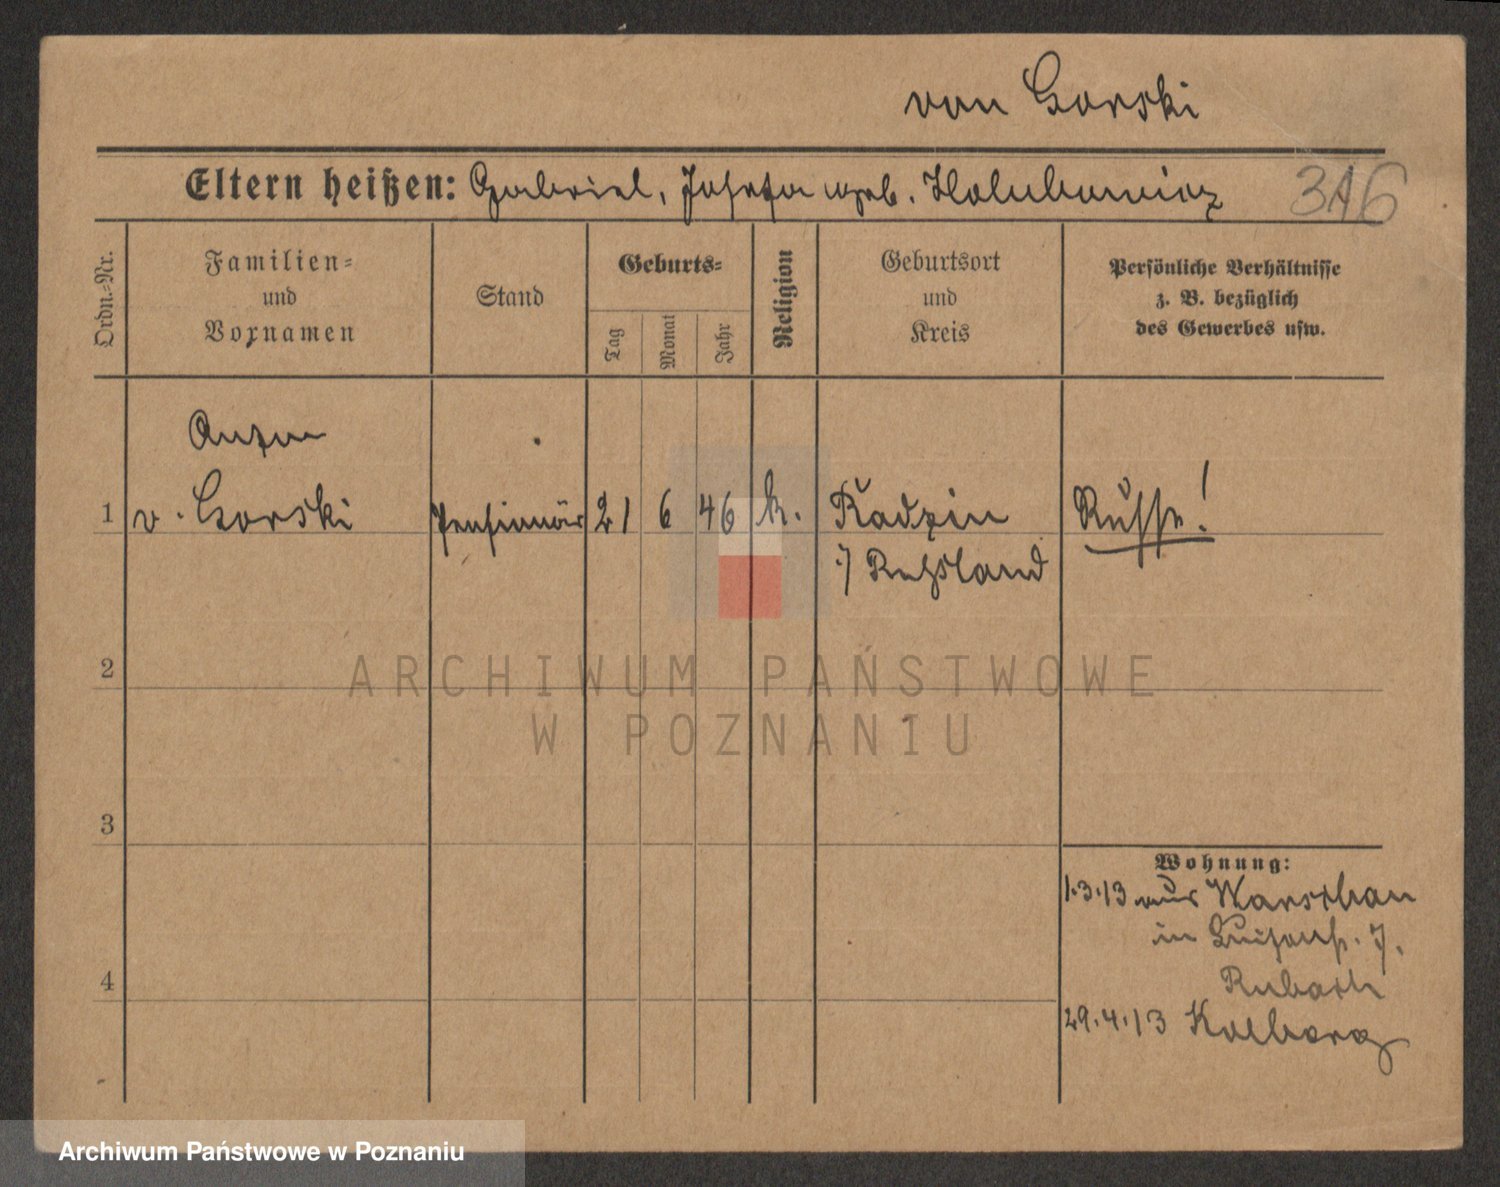 von Gorski
Eltern heißen: Gabriel, Josefa geb. Holubowicz
316
Ordn.-Nr.
Familien-
und
Vornamen
Stand
Geburts-
Tag
Monat
Jahr
Religion
Geburtsort
und
Kreis
Persönliche Verhältnisse
z. B. bezüglich
des Gewerbes usw.
Anton
1 v. Gorski Pensionär 21 6 46 k. Radzin Russe!
i/ Russland
2
ARCHIWUM PAŃSTWOWE
W POZNANIU
3
Wohnung:
1.3.13 aus Warschau
in Luisenstr. 7.
4
29.4.13 Kolberg
Archiwum Państwowe w Poznaniu